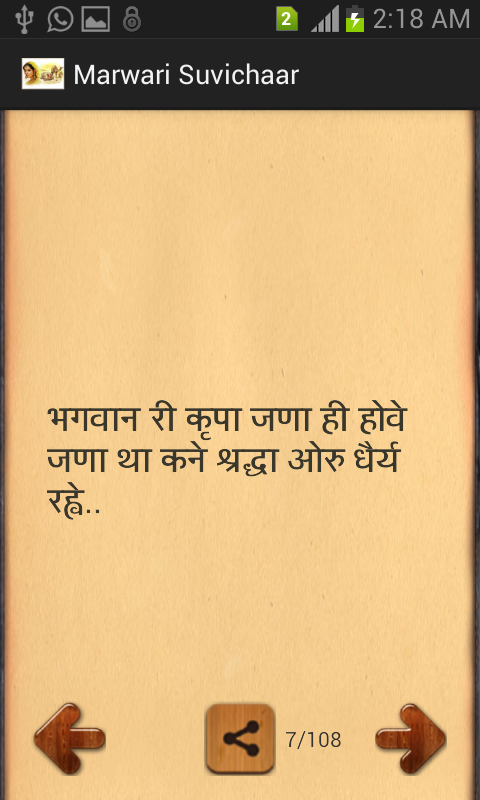 2 2:18 AM
Marwari Suvichaar
भगवान री कृपा जणा ही होवे
जणा था कने श्रद्धा ओरु धैर्य
रह्वे..
7/108